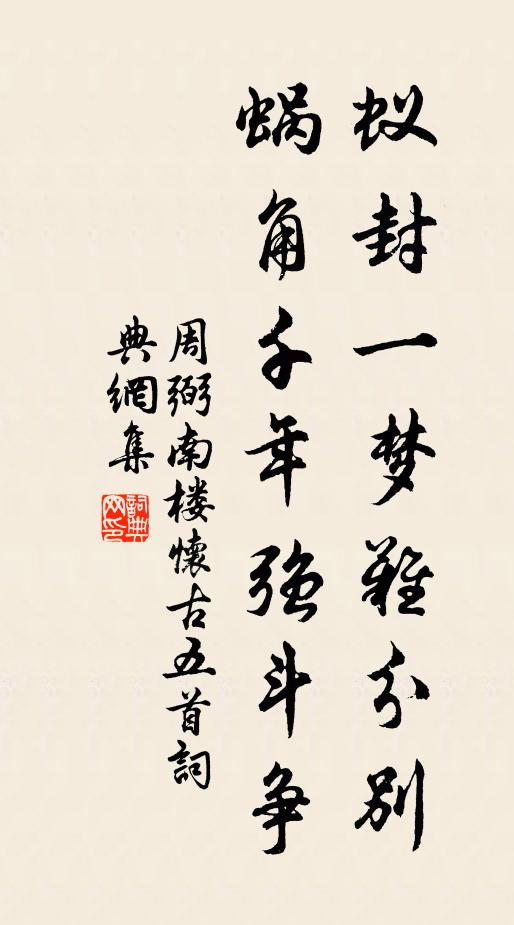 蚁封一梦难分别
蜗角千年强斗争
周弼南楼懷古五首詞
典網集
詞典网印